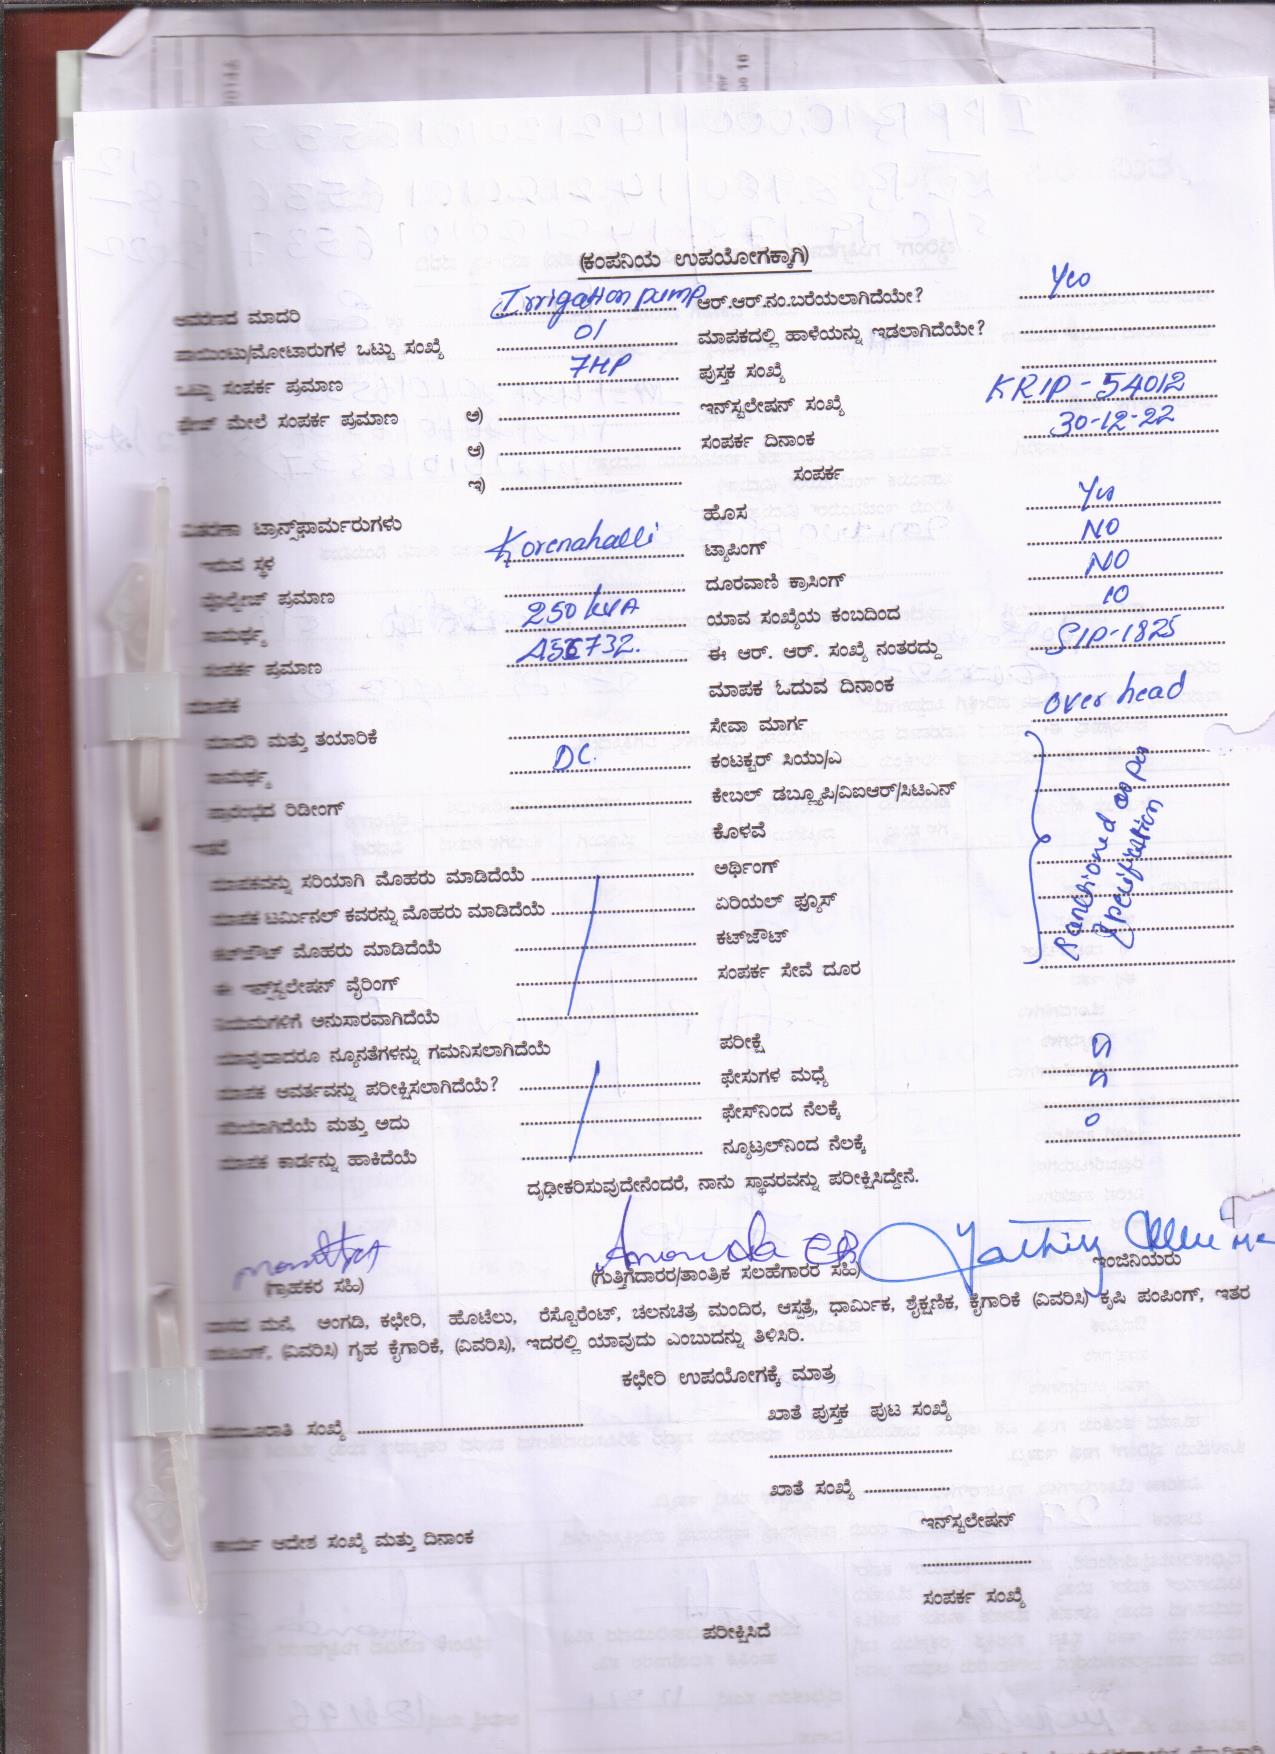 (ಕಂಪನಿಯ ಉಪಯೋಗಕ್ಕಾಗಿ)
ಆವರಣದ ಮಾದರಿ Irrigation pump ಆರ್.ಆರ್.ನಂ.ಬರೆಯಲಾಗಿದೆಯೇ? Yes
ಪಾಯಿಂಟು/ಮೋಟಾರುಗಳ ಒಟ್ಟು ಸಂಖ್ಯೆ 01 ಮಾಪಕದಲ್ಲಿ ಹಾಳೆಯನ್ನು ಇಡಲಾಗಿದೆಯೇ?
ಒಟ್ಟು ಸಂಪರ್ಕ ಪ್ರಮಾಣ 7HP ಪುಸ್ತಕ ಸಂಖ್ಯೆ
ಫೇಜ್ ಮೇಲೆ ಸಂಪರ್ಕ ಪ್ರಮಾಣ ಅ) ಇನ್‌ಸ್ಟಲೇಷನ್ ಸಂಖ್ಯೆ KRIP-54012
ಆ) ಸಂಪರ್ಕ ದಿನಾಂಕ 30-12-22
ಇ) ಸಂಪರ್ಕ
ವಿತರಣಾ ಟ್ರಾನ್ಸ್‌ಫಾರ್ಮರುಗಳು ಹೊಸ Yes
ಇರುವ ಸ್ಥಳ Korenahalli ಟ್ಯಾಪಿಂಗ್ NO
ವೋಲ್ಟೇಜ್ ಪ್ರಮಾಣ ದೂರವಾಣಿ ಕ್ರಾಸಿಂಗ್ NO
ಸಾಮರ್ಥ್ಯ 250 kVA ಯಾವ ಸಂಖ್ಯೆಯ ಕಂಬದಿಂದ 10
ಸಂಪರ್ಕ ಪ್ರಮಾಣ ಈ ಆರ್. ಆರ್. ಸಂಖ್ಯೆ ನಂತರದ್ದು SIP-1825
ಮಾಪಕ ಮಾಪಕ ಓದುವ ದಿನಾಂಕ
ಮಾದರಿ ಮತ್ತು ತಯಾರಿಕೆ ಸೇವಾ ಮಾರ್ಗ over head
ಸಾಮರ್ಥ್ಯ DC. ಕಂಟಕ್ಟರ್ ಸಿಯು/ಎ
ಪ್ರಾರಂಭದ ರಿಡೀಂಗ್ ಕೇಬಲ್ ಡಬ್ಲ್ಯೂಪಿ/ವಿಐಆರ್/ಸಿಟಿಎಸ್
ಇತರೆ ಕೊಳವೆ
ಮಾಪಕವನ್ನು ಸರಿಯಾಗಿ ಮೊಹರು ಮಾಡಿದೆಯೆ ಅರ್ಥಿಂಗ್
ಮಾಪಕ ಟರ್ಮಿನಲ್ ಕವರನ್ನು ಮೊಹರು ಮಾಡಿದೆಯೆ ಏರಿಯಲ್ ಫ್ಯೂಸ್
ಕಟ್‌ಔಟ್ ಮೊಹರು ಮಾಡಿದೆಯೆ ಕಟ್‌ಔಟ್
ಈ ಇನ್ಸ್‌ಟಲೇಷನ್ ವೈರಿಂಗ್ ಸಂಪರ್ಕ ಸೇವೆ ದೂರ
Sanctioned as per
Specification
ನಿಯಮಗಳಿಗೆ ಅನುಸಾರವಾಗಿದೆಯೆ
ಯಾವುದಾದರೂ ನ್ಯೂನತೆಗಳನ್ನು ಗಮನಿಸಲಾಗಿದೆಯೆ ಪರೀಕ್ಷೆ
ಮಾಪಕ ಆವರ್ತವನ್ನು ಪರೀಕ್ಷಿಸಲಾಗಿದೆಯೆ? ಫೇಸುಗಳ ಮಧ್ಯೆ
ಸರಿಯಾಗಿದೆಯೆ ಮತ್ತು ಅದು ಫೇಸ್‌ನಿಂದ ನೆಲಕ್ಕೆ
ಮಾಪಕ ಕಾರ್ಡನ್ನು ಹಾಕಿದೆಯೆ ನ್ಯೂಟ್ರಲ್‌ನಿಂದ ನೆಲಕ್ಕೆ 0
ದೃಢೀಕರಿಸುವುದೇನೆಂದರೆ, ನಾನು ಸ್ಥಾವರವನ್ನು ಪರೀಕ್ಷಿಸಿದ್ದೇನೆ.
(ಗ್ರಾಹಕರ ಸಹಿ) (ಗುತ್ತಿಗೆದಾರರ/ತಾಂತ್ರಿಕ ಸಲಹೆಗಾರರ ಸಹಿ) ಇಂಜಿನಿಯರು
ವಾಸದ ಮನೆ, ಅಂಗಡಿ, ಕಛೇರಿ, ಹೊಟೆಲು, ರೆಸ್ಟೊರೆಂಟ್, ಚಲನಚಿತ್ರ ಮಂದಿರ, ಆಸ್ಪತ್ರೆ, ಧಾರ್ಮಿಕ, ಶೈಕ್ಷಣಿಕ, ಕೈಗಾರಿಕೆ (ವಿವರಿಸಿ) ಕೃಷಿ ಪಂಪಿಂಗ್, ಇತರ
ಪಂಪಿಂಗ್, (ವಿವರಿಸಿ) ಗೃಹ ಕೈಗಾರಿಕೆ, (ವಿವರಿಸಿ), ಇದರಲ್ಲಿ ಯಾವುದು ಎಂಬುದನ್ನು ತಿಳಿಸಿರಿ.
ಕಛೇರಿ ಉಪಯೋಗಕ್ಕೆ ಮಾತ್ರ
ಮಂಜೂರಾತಿ ಸಂಖ್ಯೆ ಖಾತೆ ಪುಸ್ತಕ ಪುಟ ಸಂಖ್ಯೆ
ಖಾತೆ ಸಂಖ್ಯೆ
ಕಾರ್ಯ ಆದೇಶ ಸಂಖ್ಯೆ ಮತ್ತು ದಿನಾಂಕ ಇನ್‌ಸ್ಟಲೇಷನ್
ಸಂಪರ್ಕ ಸಂಖ್ಯೆ
ಪರೀಕ್ಷಿಸಿದೆ